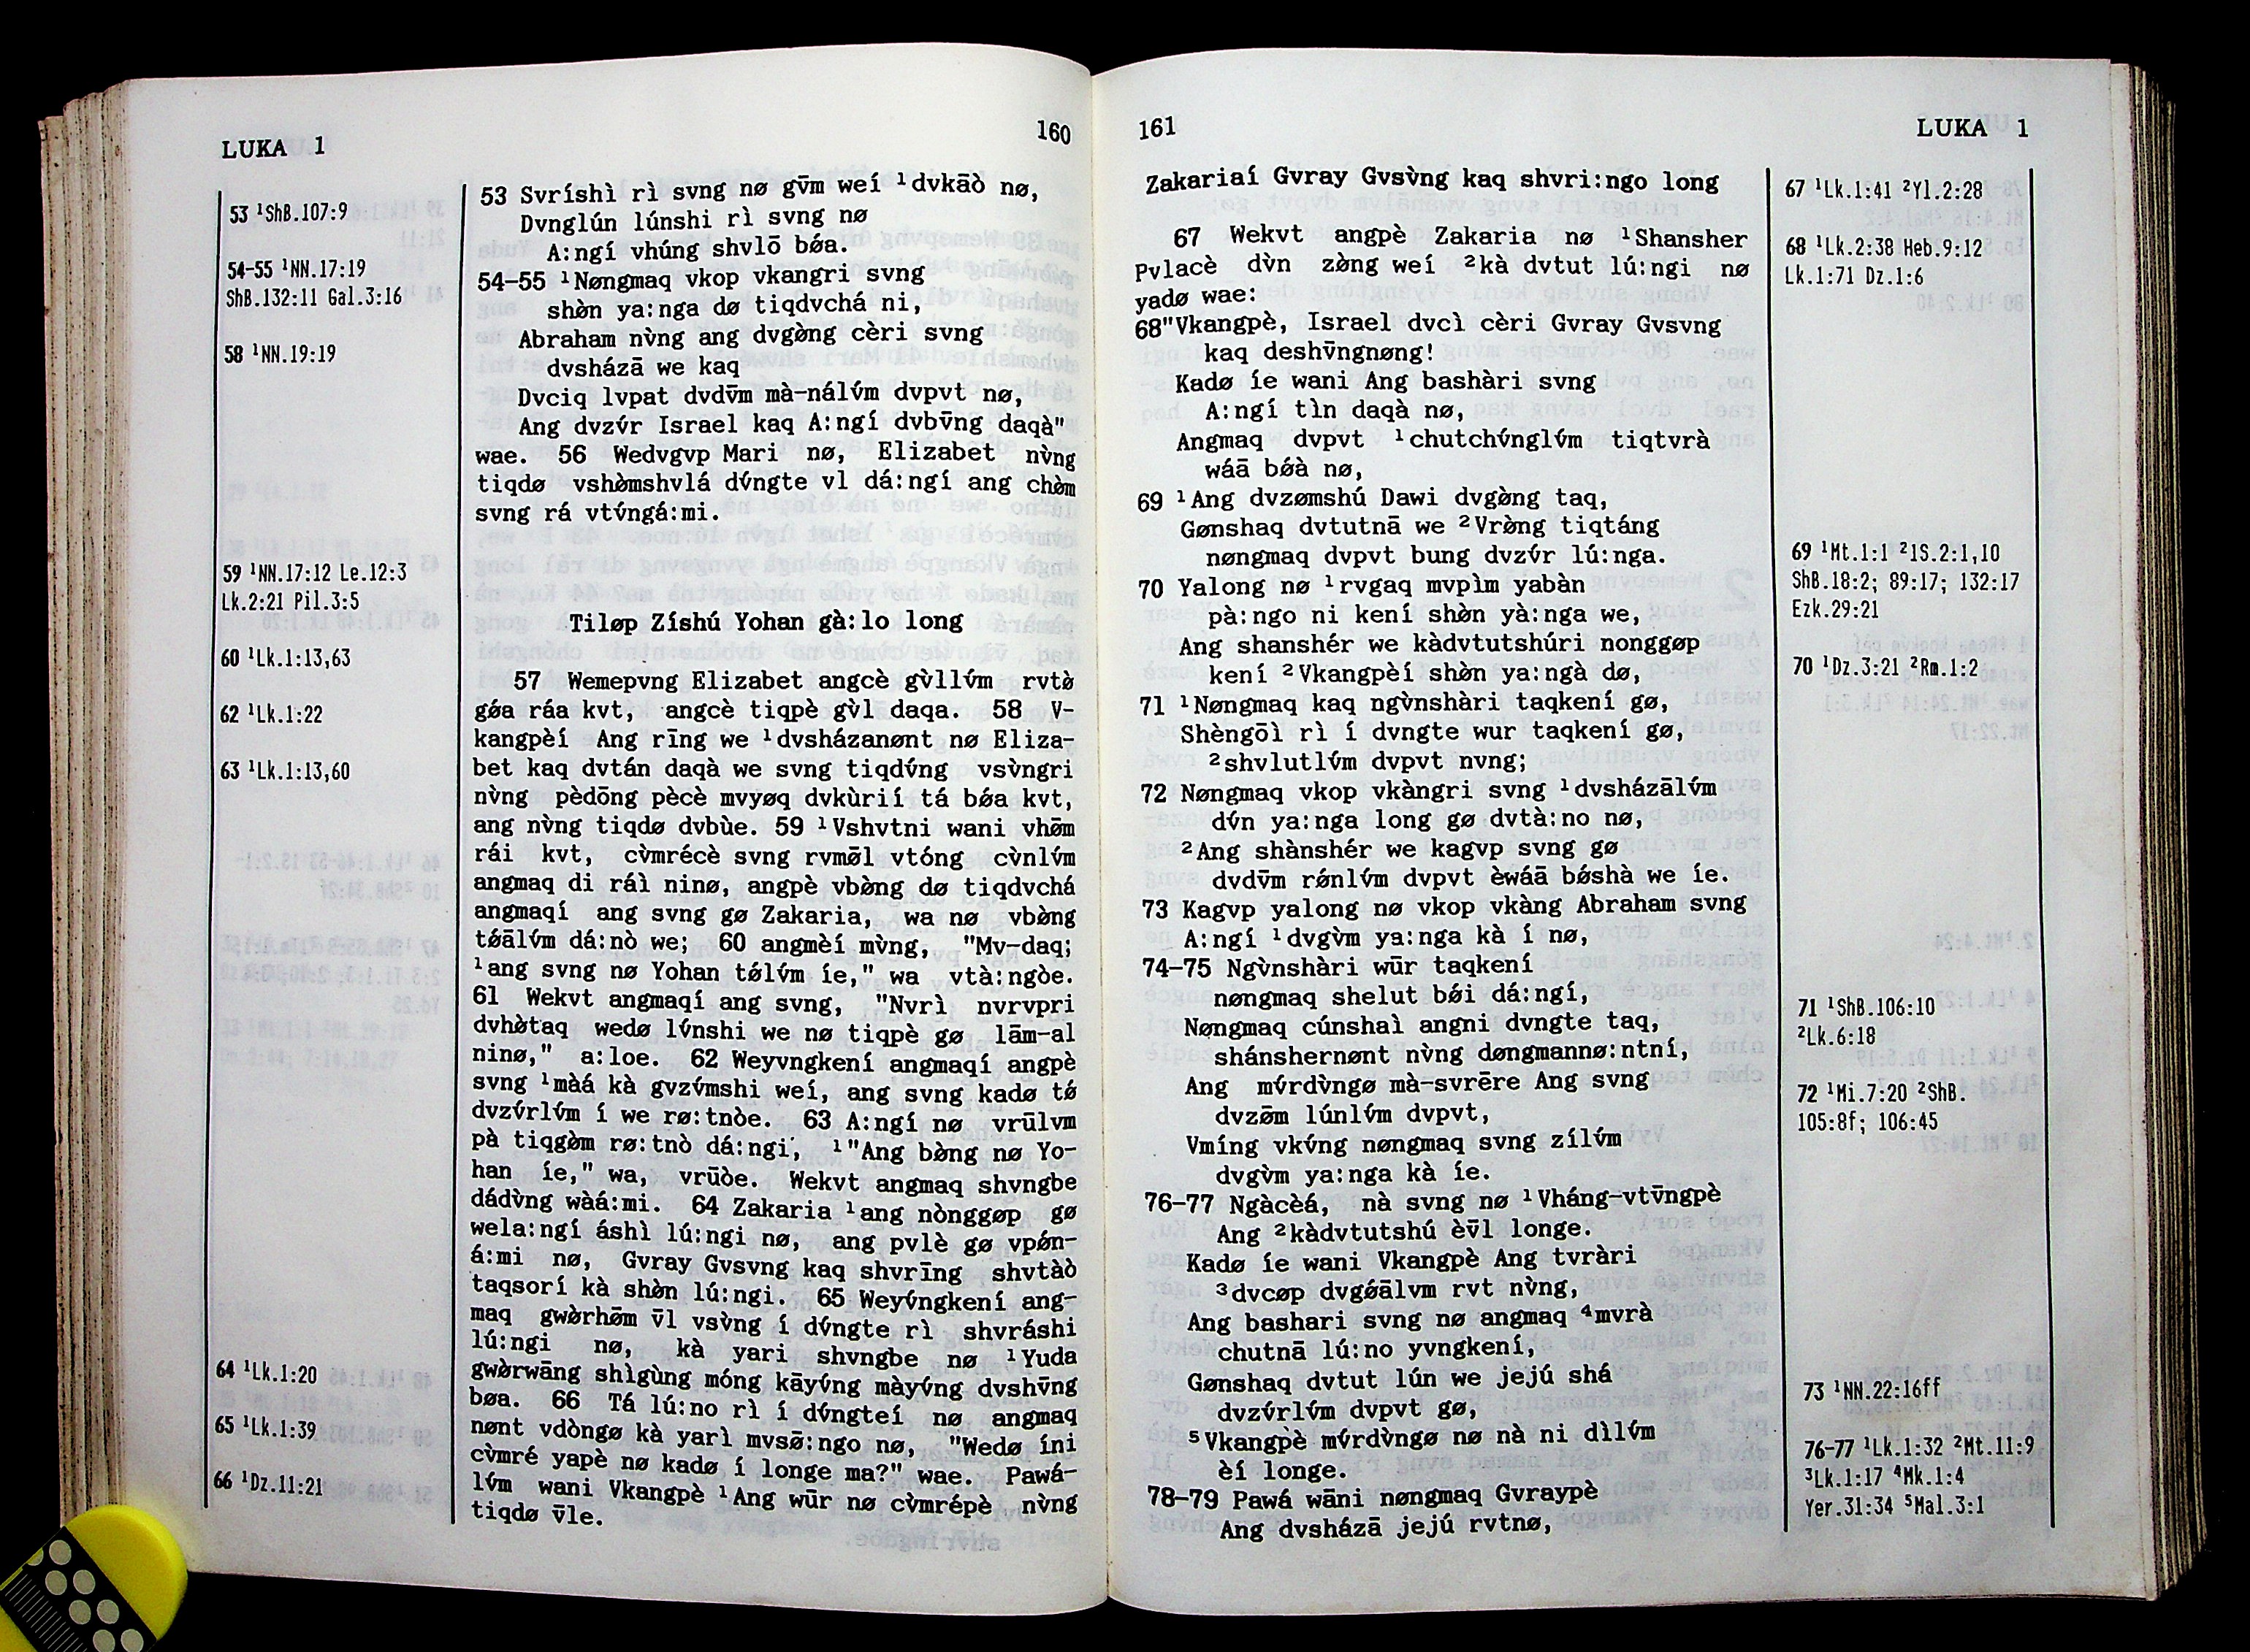 LUKA 1
160
53 ¹ShB.107:9
54-55 ¹NN.17:19
ShB.132:11 Gal.3:16
58 ¹NN.19:19
59 ¹NN.17:12 Le.12:3
Lk.2:21 Pil.3:5
60 ¹Lk.1:13,63
62 ¹Lk.1:22
63 ¹Lk.1:13,60
64 ¹Lk.1:20
65 ¹Lk.1:39
66 ¹Dz.11:21
53 Svríshì rì svng nø gv̄m weí ¹dvkāò nø,
Dvnglún lúnshi rì svng nø
A:ngí vhúng shvlō bǿa.
54-55 ¹Nøngmaq vkop vkangri svng
shø̀n ya:nga dø tiqdvchá ni,
Abraham nv̀ng ang dvgø̀ng cèri svng
dvsházā we kaq
Dvciq lvpat dvdv̄m mà-nálv́m dvpvt nø,
Ang dvzv́r Israel kaq A:ngí dvbv̄ng daqà"
wae. 56 Wedvgvp Mari nø, Elizabet nv̀ng
tiqdø vshø̀mshvlá dv́ngte vl dá:ngí ang chø̀m
svng rá vtv́ngá:mi.
Tiløp Zíshú Yohan gà:lo long
57 Wemepvng Elizabet angcè gv̀llv́m rvtø̀
gǿa ráa kvt, angcè tiqpè gv̀l daqa. 58 V-
kangpèí Ang rīng we ¹dvsházanønt nø Eliza-
bet kaq dvtán daqà we svng tiqdv́ng vsv̀ngri
nv̀ng pèdōng pècè mvyøq dvkùrií tá bǿa kvt,
ang nv̀ng tiqdø dvbùe. 59 ¹Vshvtni wani vhø̄m
rái kvt, cv̀mrécè svng rvmø̄l vtóng cv̀nlv́m
angmaq di ráì ninø, angpè vbø̀ng dø tiqdvchá
angmaqí ang svng gø Zakaria, wa nø vbø̀ng
tǿālv́m dá:nò we; 60 angmèí mv̀ng, "Mv-daq;
¹ang svng nø Yohan tǿlv́m íe," wa vtà:ngòe.
61 Wekvt angmaqí ang svng, "Nvrì nvrvpri
dvhø̀taq wedø lv́nshi we nø tiqpè gø lām-al
ninø," a:loe. 62 Weyvngkení angmaqí angpè
svng ¹màá kà gvzv́mshi weí, ang svng kadø tǿ
dvzv́rlv́m í we rø:tnòe. 63 A:ngí nø vrūlvm
pà tiqgø̀m rø:tnò dá:ngi, ¹"Ang bø̀ng nø Yo-
han íe," wa, vrūòe. Wekvt angmaq shvngbe
dádv̀ng wàá:mi. 64 Zakaria ¹ang nònggøp gø
wela:ngí áshì lú:ngi nø, ang pvlè gø vpǿn-
á:mi nø, Gvray Gvsvng kaq shvrīng shvtàò
taqsorí kà shø̀n lú:ngi. 65 Weyv́ngkení ang-
maq gwø̀rhø̄m v̄l vsv̀ng í dv́ngte rì shvráshi
lú:ngi nø, kà yari shvngbe nø ¹Yuda
gwø̀rwāng shìgùng móng kāyv́ng màyv́ng dvshv̄ng
bøa. 66 Tá lú:no rì í dv́ngteí nø angmaq
nønt vdòngø kà yarì mvsø̄:ngo nø, "Wedø íni
cv̀mré yapè nø kadø í longe ma?" wae. Pawá-
lv́m wani Vkangpè ¹Ang wūr nø cv̀mrépè nv̀ng
tiqdø v̄le.
161
LUKA 1
Zakariaí Gvray Gvsv̀ng kaq shvri:ngo long
67 Wekvt angpè Zakaria nø ¹Shansher
Pvlacè dv̀n zø̀ng weí ²kà dvtut lú:ngi nø
yadø wae:
68"Vkangpè, Israel dvcì cèri Gvray Gvsvng
kaq deshv̄ngnøng!
Kadø íe wani Ang bashàri svng
A:ngí tìn daqà nø,
Angmaq dvpvt ¹chutchv́nglv́m tiqtvrà
wáā bǿà nø,
69 ¹Ang dvzømshú Dawi dvgø̀ng taq,
Gønshaq dvtutnā we ²Vrø̀ng tiqtáng
nøngmaq dvpvt bung dvzv́r lú:nga.
70 Yalong nø ¹rvgaq mvpìm yabàn
pà:ngo ni kení shø̀n yà:nga we,
Ang shanshér we kàdvtutshúri nonggøp
kení ²Vkangpèí shø̀n ya:ngà dø,
71 ¹Nøngmaq kaq ngv̀nshàri taqkení gø,
Shèngōì rì í dvngte wur taqkení gø,
²shvlutlv́m dvpvt nvng;
72 Nøngmaq vkop vkàngri svng ¹dvsházālv́m
dv́n ya:nga long gø dvtà:no nø,
²Ang shànshér we kagvp svng gø
dvdv̄m rǿnlv́m dvpvt èwáā bǿshà we íe.
73 Kagvp yalong nø vkop vkàng Abraham svng
A:ngí ¹dvgv̀m ya:nga kà í nø,
74-75 Ngv̀nshàri wūr taqkení
nøngmaq shelut bǿi dá:ngí,
Nøngmaq cúnshaì angni dvngte taq,
shánshernønt nv̀ng døngmannø:ntní,
Ang mv́rdv̀ngø mà-svrēre Ang svng
dvzø̄m lúnlv́m dvpvt,
Vmíng vkv́ng nøngmaq svng zílv́m
dvgv̀m ya:nga kà íe.
76-77 Ngàcèá, nà svng nø ¹Vháng-vtv̄ngpè
Ang ²kàdvtutshú èv̄l longe.
Kadø íe wani Vkangpè Ang tvràri
³dvcøp dvgǿālvm rvt nv̀ng,
Ang bashari svng nø angmaq ⁴mvrà
chutnā lú:no yvngkení,
Gønshaq dvtut lún we jejú shá
dvzv́rlv́m dvpvt gø,
⁵Vkangpè mv́rdv̀ngø nø nà ni dìlv́m
èí longe.
78-79 Pawá wāni nøngmaq Gvraypè
Ang dvsházā jejú rvtnø,
67 ¹Lk.1:41 ²Yl.2:28
68 ¹Lk.2:38 Heb.9:12
Lk.1:71 Dz.1:6
69 ¹Mt.1:1 ²1S.2:1,10
ShB.18:2; 89:17; 132:17
Ezk.29:21
70 ¹Dz.3:21 ²Rm.1:2
71 ¹ShB.106:10
²Lk.6:18
72 ¹Mi.7:20 ²ShB.
105:8f; 106:45
73 ¹NN.22:16ff
76-77 ¹Lk.1:32 ²Mt.11:9
³Lk.1:17 ⁴Mk.1:4
Yer.31:34 ⁵Mal.3:1